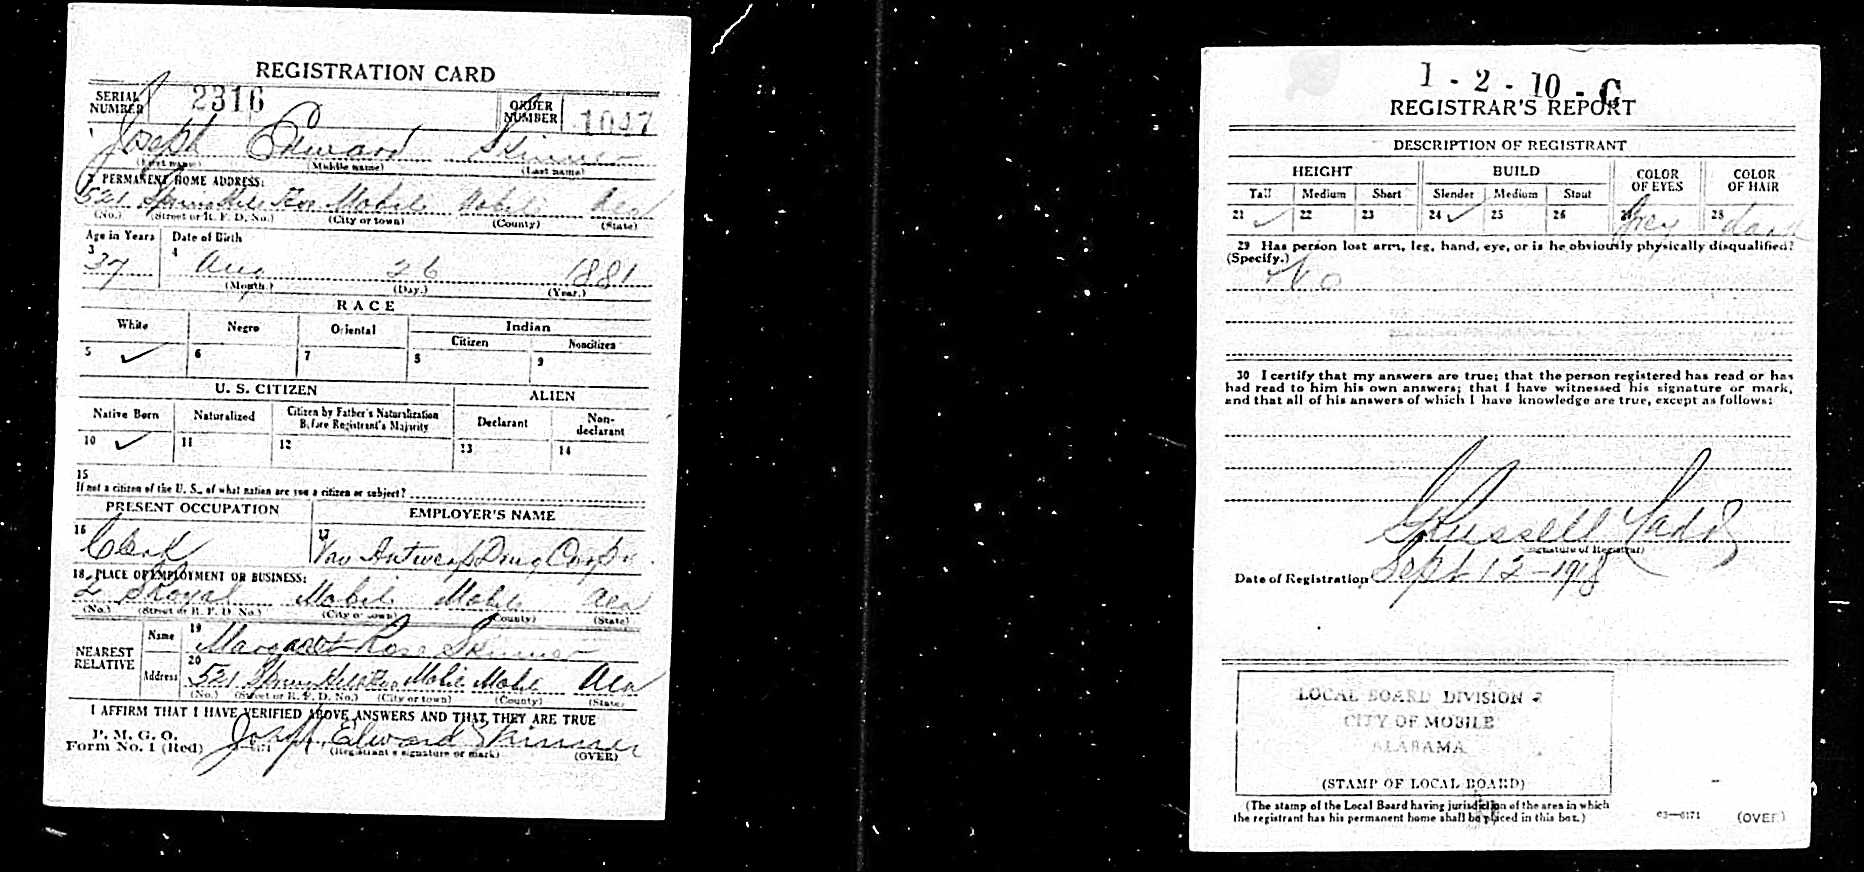 REGISTRATION CARD
SERIAL NUMBER 2316 ORDER NUMBER 1047
1 Joseph Edward Skinner
(First name) (Middle name) (Last name)
2 PERMANENT HOME ADDRESS:
521 Spring Hill Mobile Mobile Ala
(No.) (Street or R. F. D. No.) (City or town) (County) (State)
Age in Years Date of Birth
3 37 4 Aug 26 1881
(Month.) (Day.) (Year.)
RACE
White Negro Oriental Indian
Citizen Noncitizen
5 ✓ 6 7 8 9
U. S. CITIZEN ALIEN
Native Born Naturalized Citizen by Father's Naturalization Before Registrant's Majority Declarant Non-declarant
10 ✓ 11 12 13 14
15
If not a citizen of the U. S., of what nation are you a citizen or subject?
PRESENT OCCUPATION EMPLOYER'S NAME
16 Clerk 17 Van Antwerp Drug Corp
18 PLACE OF EMPLOYMENT OR BUSINESS:
2 S Royal Mobile Mobile Ala
(No.) (Street or R. F. D. No.) (City or town) (County) (State)
NEAREST RELATIVE
Name 19 Margaret Rose Skinner
Address 20 521 Spring Hill Mobile Mobile Ala
(No.) (Street or R. F. D. No.) (City or town) (County) (State)
I AFFIRM THAT I HAVE VERIFIED ABOVE ANSWERS AND THAT THEY ARE TRUE
P. M. G. O.
Form No. 1 (Red) Joseph Edward Skinner
(Registrant's signature or mark) (OVER)
1-2-10-C
REGISTRAR'S REPORT
DESCRIPTION OF REGISTRANT
HEIGHT BUILD COLOR OF EYES COLOR OF HAIR
Tall Medium Short Slender Medium Stout
21 ✓ 22 23 24 ✓ 25 26 27 Grey 28 dark
29 Has person lost arm, leg, hand, eye, or is he obviously physically disqualified?
(Specify.) No
30 I certify that my answers are true; that the person registered has read or has
had read to him his own answers; that I have witnessed his signature or mark,
and that all of his answers of which I have knowledge are true, except as follows:
Russell
(Signature of Registrar)
Date of Registration Sept 12-1918
LOCAL BOARD DIVISION 2
CITY OF MOBILE
ALABAMA
(STAMP OF LOCAL BOARD)
(The stamp of the Local Board having jurisdiction of the area in which
the registrant has his permanent home shall be placed in this box.)
03—6171 (OVER)